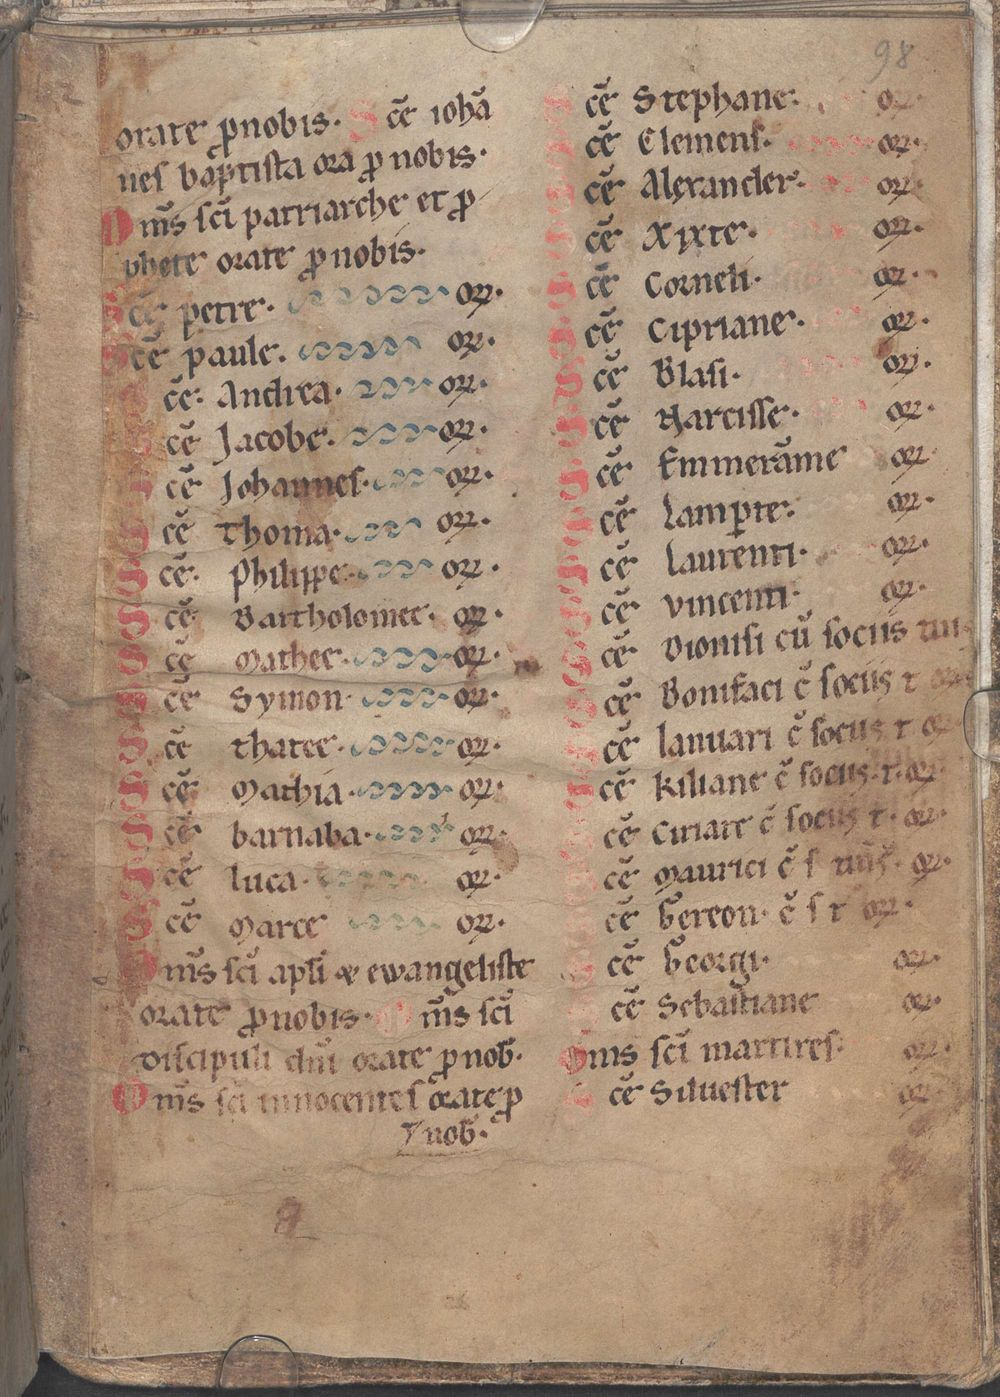 98
orate p̄ nobis. Sc̄e iohā
nes baptista ora p̄ nobis.
Om̄s sc̄i patriarche et p̄
phete orate p̄ nobis.
Sc̄e petre. or̄.
Sc̄e paule. or̄.
Sc̄e Andrea. or̄.
Sc̄e Jacobe. or̄.
Sc̄e Johannes. or̄.
Sc̄e Thoma. or̄.
Sc̄e Philippe. or̄.
Sc̄e Bartholomee. or̄.
Sc̄e Mathee. or̄.
Sc̄e Symon. or̄.
Sc̄e thatee. or̄.
Sc̄e Mathia. or̄.
Sc̄e barnaba. or̄.
Sc̄e luca. or̄.
Sc̄e Marce or̄.
Om̄s sc̄i apl̄i & ewangeliste
orate p̄ nobis. Om̄s sc̄i
discipuli dn̄i orate p̄ nob̄.
Om̄s sc̄i innocentes orate p̄
nob̄.
Sc̄e Stephane. or̄.
Sc̄e Clemens. or̄.
Sc̄e Alexander. or̄.
Sc̄e Xixte. or̄.
Sc̄e Corneli. or̄.
Sc̄e Cipriane. or̄.
Sc̄e Blasi. or̄.
Sc̄e Narcisse. or̄.
Sc̄e Emmerāme or̄.
Sc̄e Lamp̄te. or̄.
Sc̄e Laurenti. or̄.
Sc̄e vincenti. or̄.
Sc̄e Dionisi cū sociis tuis
Sc̄e Bonifaci c̄ sociis t or̄
Sc̄e Ianuari c̄ sociis t or̄
Sc̄e Kiliane c̄ sociis t. or̄.
Sc̄e Ciriace c̄ sociis t. or̄.
Sc̄e Maurici c̄ s tuis. or̄.
Sc̄e Gereon. c̄ s t or̄.
Sc̄e Georgi. or̄.
Sc̄e Sebastiane or̄.
Om̄s sc̄i martires. or̄.
Sc̄e Siluester or̄.